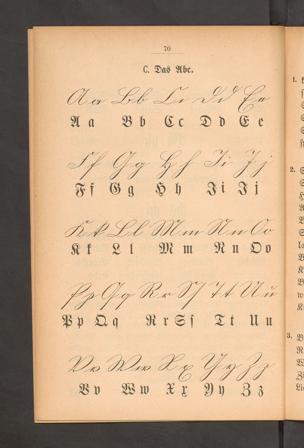 70
C. Das Abc.
Aa Bb Cc Dd Ee
Aa Bb Cc Dd Ee
Ff Gg Hh Ii Jj
Ff Gg Hh Ii Jj
Kk Ll Mm Nn Oo
Kk Ll Mm Nn Oo
Pp Qq Rr Sſ Tt Uu
Pp Qq Rr Sſ Tt Uu
Vv Ww Xx Yy Zz
Vv Ww Xx Yy Zz
1.
2.
3.